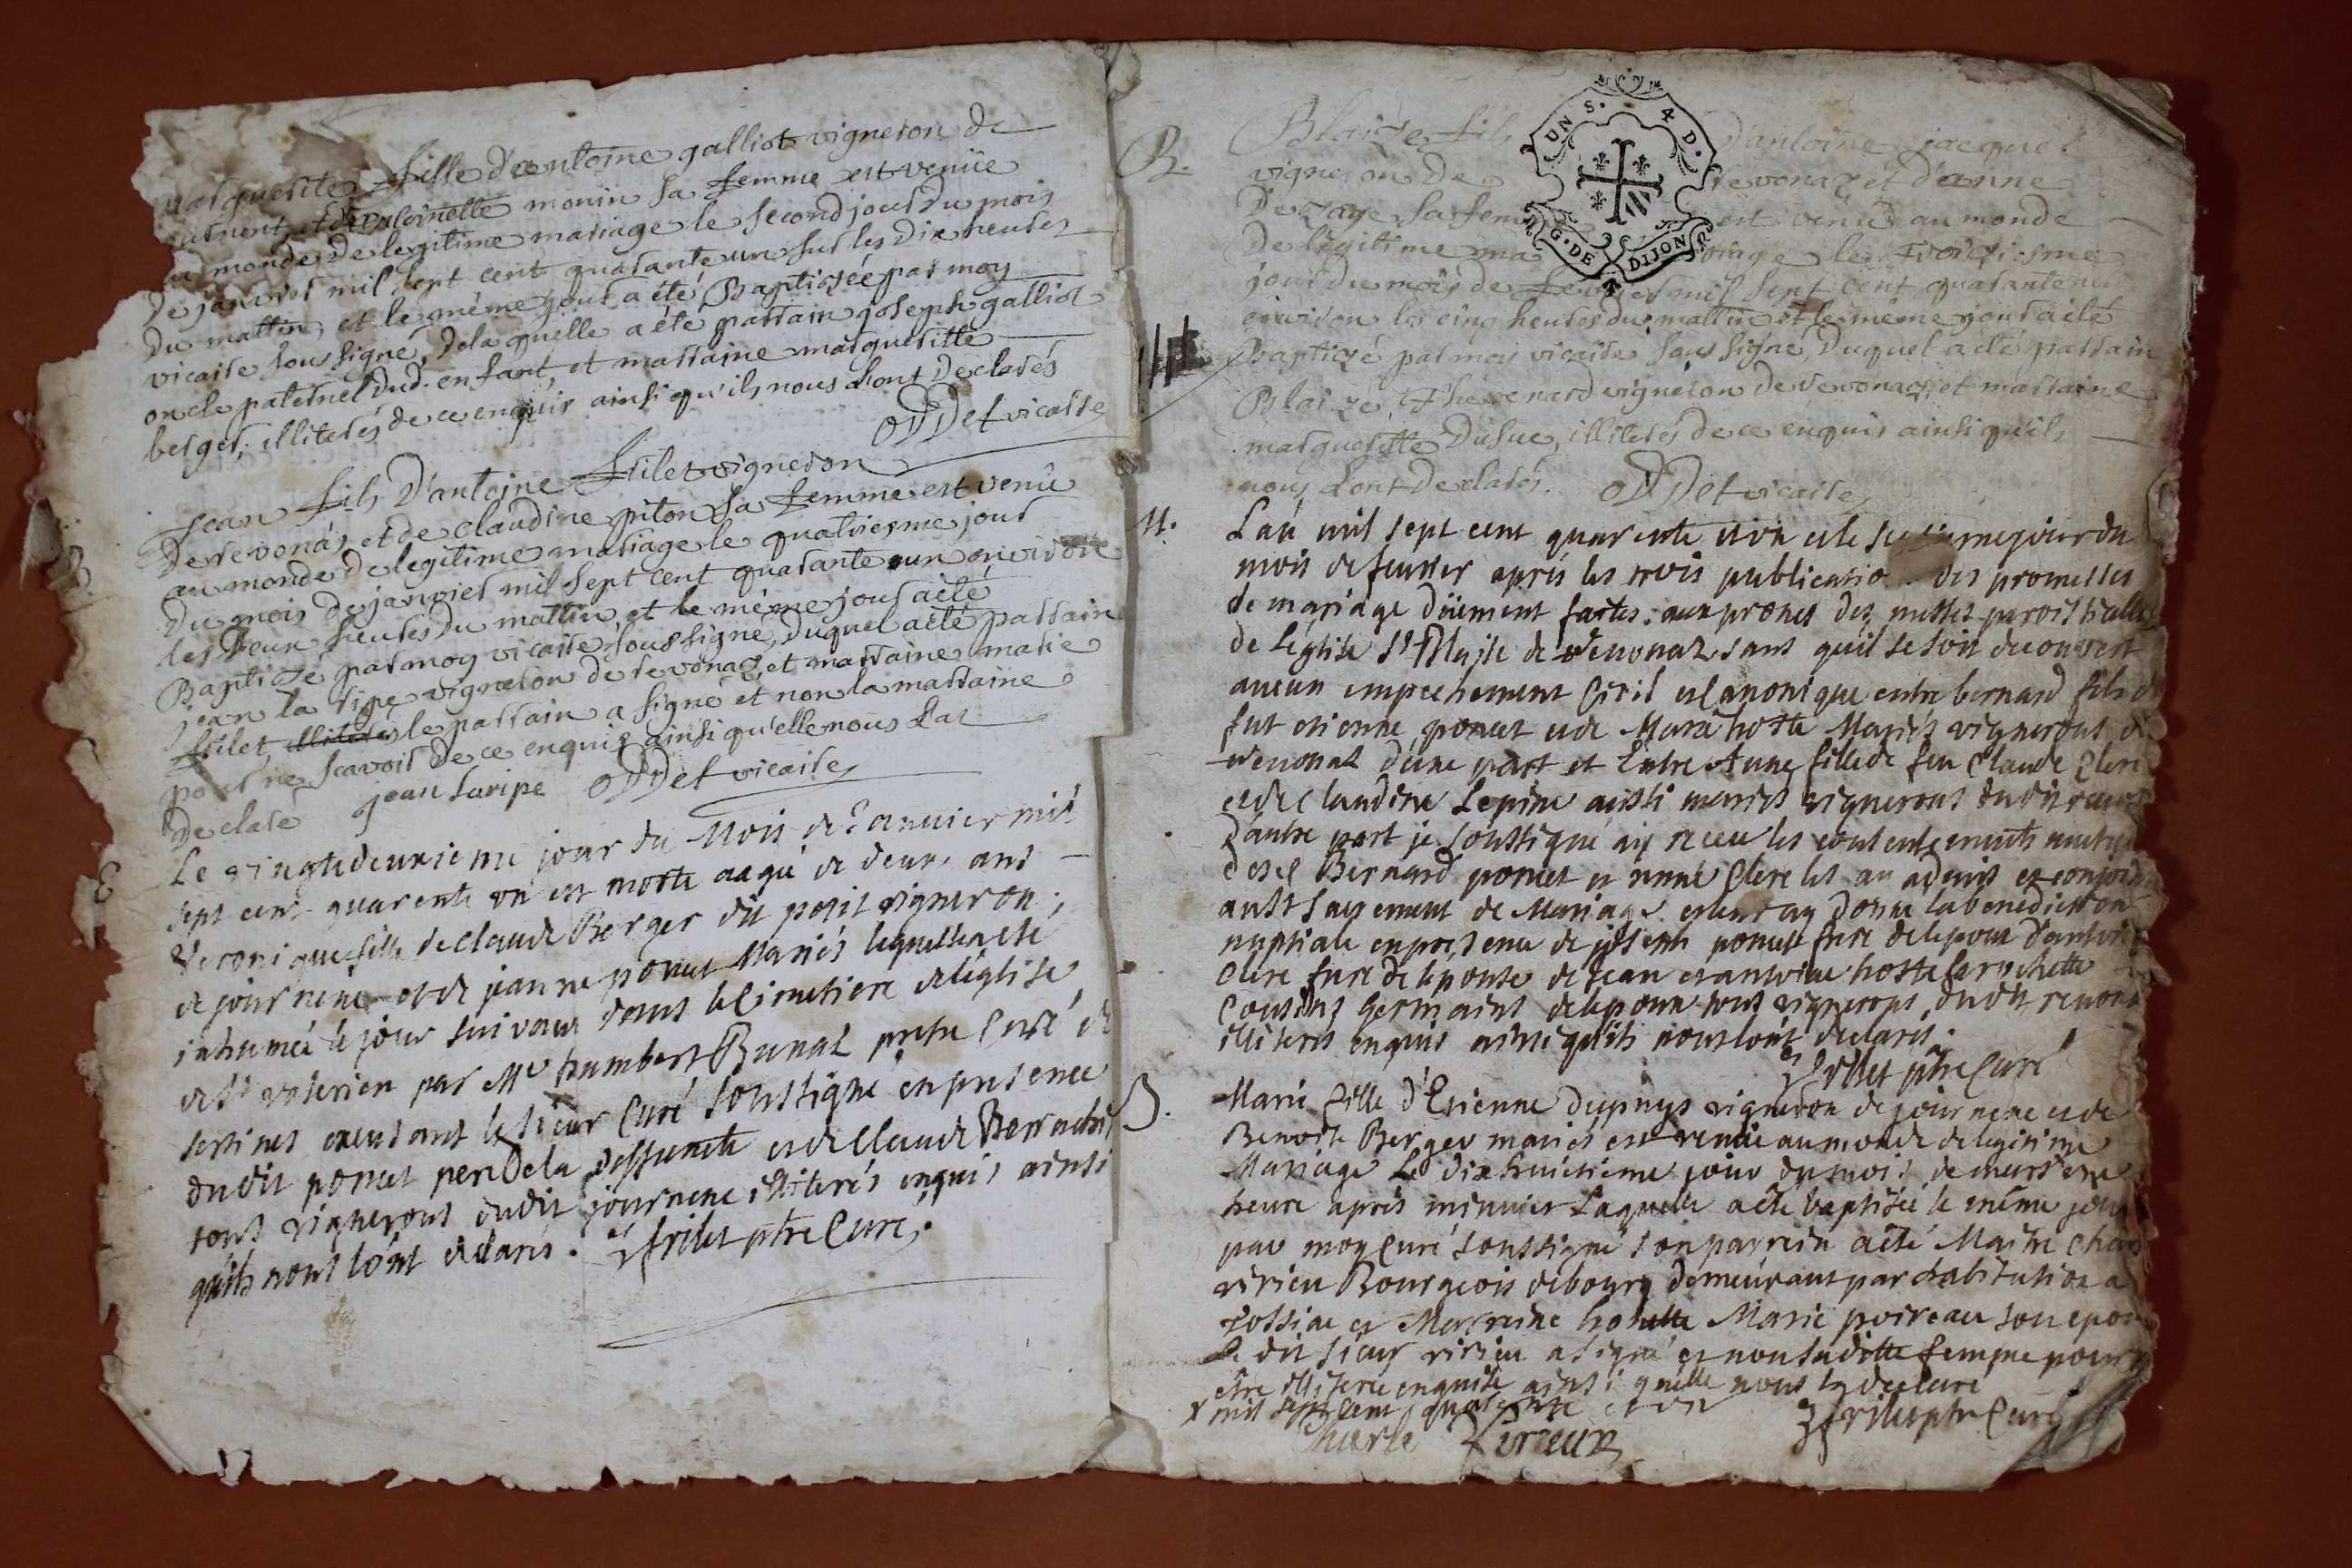 fille d'antoine galliot vigneron de
et d'antoinette monin sa femme est venüe
monde de legitime mariage le second jour du mois
De janvier mil sept cent quarante un sur les dix heures
du mattin, et le même jour a été Baptizée par moy
vicaire sous signé, de la quelle a été parrain joseph galliot
oncle paternel dud. enfant, et marraine margueritte
berger, illiterés de ce enquis ainsi qu'ils nous l'ont declarés
ODDet vicaire
B.
Jean fils D'antoine frilet vigneron
De revonas, et de claudine piton sa femme est venû
au monde de legitime mariage le quatriesme jour
du mois de janvier mil sept cent quarante un environ
les deux heures du mattin, et le même jour a été
Baptizé par moy vicaire sous signé, duquel a été parrain
jean la ripe vigneron de revonaz, et marraine marie
frilet, illiterés le parrain a signé et non la marraine
pour ne scavoir de ce enquis ainsi qu'elle nous l'at
Declaré jean Laripe ODDet vicaire
Le vingtedeuxieme jour du Mois de Janvier mil
sept cent quarente un est morte aagé de deux ans
Veronique fille de claude Berger dit petit vigneron
de journene et de jeanne ponut Mariés laquelle a été
inhumée le jour suivant dans le Cimetiere de l'église
de St valerien par Mre humbert Bunaz pretre Curé de
sertines executant le sieur Curé soussigné en presence
dudit ponut pere de la deffuncte et de Claude
tous vignerons dudit journene illiterés enquis ainsi
qu'ils nous l'ont declarés. frilet ptre Curé.
B.
Blaize fils D'antoine jacque
vigneron de revonaz et d'anne
Dezaye sa fem est venû au monde
De legitime ma riage le troizieme
jour du mois de fevrier mil sept cent quarante un
environ les cinq heures du mattin et le même jour a été
Baptizé par moy vicaire sous signé, duquel a été parrain
Blaize Thevenard vigneron de revonaz, et marraine
marguerette Dusuc, illiterés de ce enquis ainsi qu'ils
nous l'ont declarés. ODDet vicaire
M.
L'an mil sept cent quarente et un et le jour du
mois de fevrier aprés les trois publications des promesses
de mariage düement faites aux prones des messes paroissialles
de l'église St Blaise de Revonaz sans qu'il se soit decouvert
aucun empechement Civil et Canonique entre bernard fils de
fut etienne ponut et de Marie hoste Mariés vignerons de
revonaz d'une part et Entre Anne fille de feu Claude Clere
et de Claudine Lepine aussi mariés vignerons dudit revonaz
d'autre part je soussigné ay receu les consentements mutuels
desd Bernard ponut et anne Clere les ay admis et conjoint
aust sacrement de Mariage et leur ay donné la benediction
nuptiale en presence de joseph ponut frere de l'epoux d'antoine
Clere frere de l'epouse de Jean et antoine hoste
Cousins Germains de l'epoux tous vignerons dudit revonaz
illiterés enquis ainsi qu'ils nous l'ont declarés.
frilet ptre Curé
B.
Marie fille d'Etienne dupuys vigneron de journene et de
Benoite Berger mariés est venüe au monde de legitime
Mariage Le dixhuitieme jour du mois de mars une
heure aprés minuit Laquelle a été baptisée le même jour
par moy Curé soussigné son parrein a été Maitre Charle
virieu Bourgeois de bourg demeurant par habitation a
rossiae et Marreine honette Marie poireau son epouse
Le dit sieur virieu a signé et non sa ditte femme pour
etre illiterée enquise ainsi qu'elle nous la declaré
x mil sept cent quarente et un frilet ptre Curé
Charle Virieux
UN S. 4 D.
G. DE DIJON